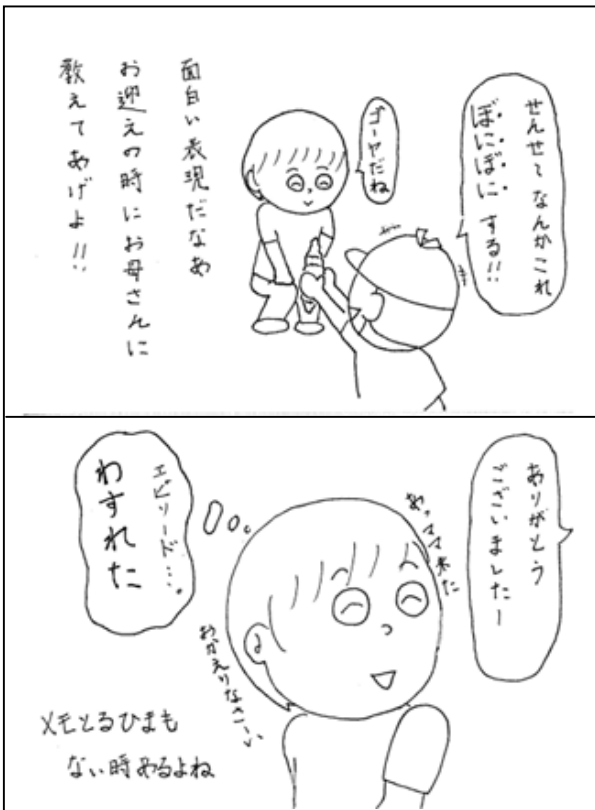 せんせ〜なんかこれ
ぼにぼにする!!
ゴーヤだね
面白い表現だなあ
お迎えの時にお母さんに
教えてあげよ!!
ありがとう
ございましたー
あっママ来た
エピソード...。
わすれた
おかえりなさーい
メモとるひまも
ない時あるよね